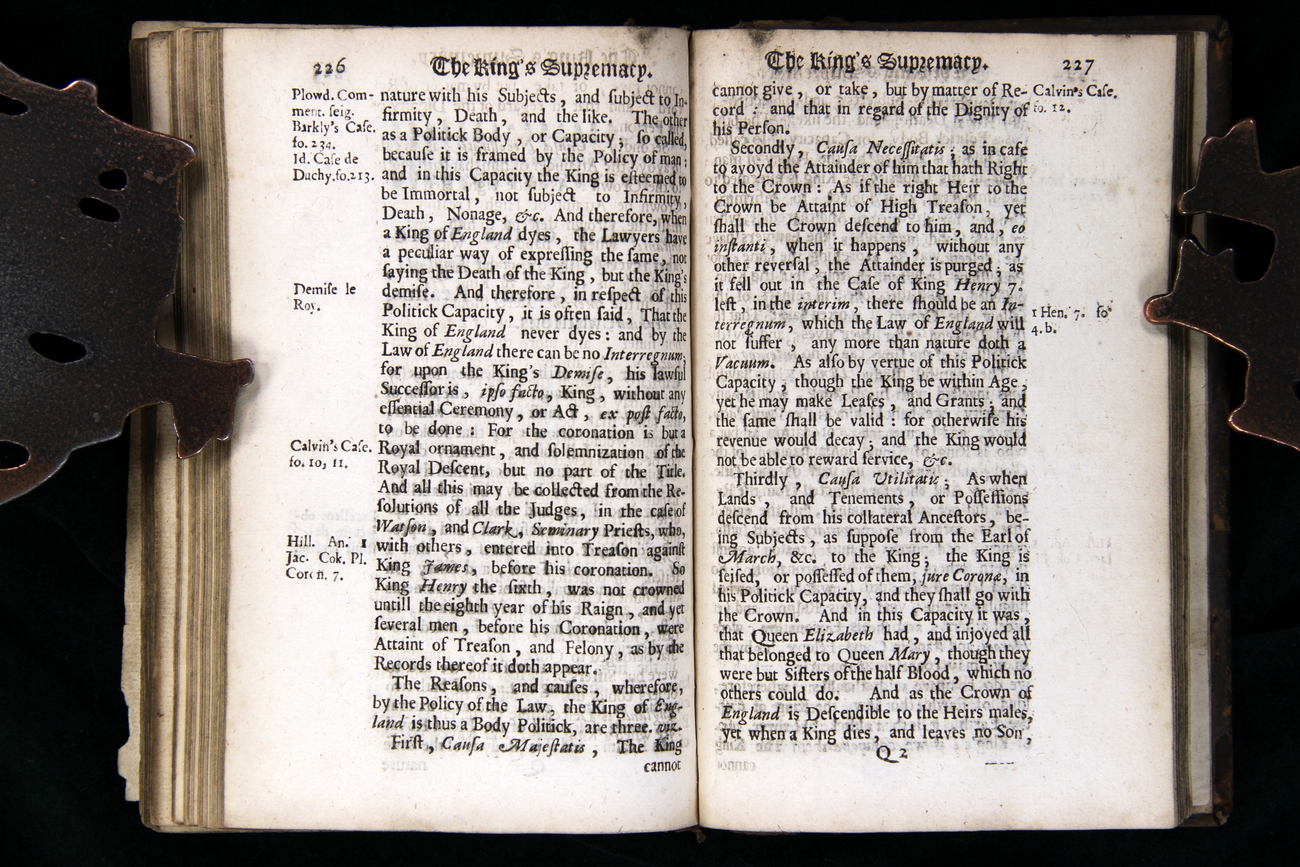 226
The King's Supremacy.
Plowd. Com-
ment. ſeig.
Barkly's Caſe.
fo. 234.
Id. Caſe de
Duchy.fo.213.
Demiſe le
Roy.
Calvin's Caſe.
fo. 10, 11.
Hill. An. 1
Jac. Cok. Pl.
7.
nature with his Subjects, and ſubject to In-
firmity, Death, and the like. The other
as a Politick Body, or Capacity; ſo called,
becauſe it is framed by the Policy of man:
and in this Capacity the King is eſteemed to
be Immortal, not ſubject to Infirmity,
Death, Nonage, &c. And therefore, when
a King of England dyes, the Lawyers have
a peculiar way of expreſſing the ſame, not
ſaying the Death of the King, but the King's
demiſe. And therefore, in reſpect of this
Politick Capacity, it is often ſaid, That the
King of England never dyes: and by the
Law of England there can be no Interregnum;
for upon the King's Demiſe, his lawful
Succeſſor is, ipſo facto, King, without any
eſſential Ceremony, or Act, ex poſt facto,
to be done: For the coronation is but a
Royal ornament, and ſolemnization of the
Royal Deſcent, but no part of the Title.
And all this may be collected from the Re-
ſolutions of all the Judges, in the caſe of
Watſon, and Clark, Seminary Prieſts, who,
with others, entered into Treaſon againſt
King James, before his coronation. So
King Henry the ſixth, was not crowned
untill the eighth year of his Raign, and yet
ſeveral men, before his Coronation, were
Attaint of Treaſon, and Felony, as by the
Records thereof it doth appear.
The Reaſons, and cauſes, wherefore,
by the Policy of the Law, the King of Eng-
land is thus a Body Politick, are three. viz.
Firſt, Cauſa Majeſtatis, The King
cannot
The King's Supremacy.
227
cannot give, or take, but by matter of Re-
cord: and that in regard of the Dignity of
his Perſon.
Secondly, Cauſa Neceſſitatis; as in caſe
to avoyd the Attainder of him that hath Right
to the Crown: As if the right Heir to the
Crown be Attaint of High Treaſon, yet
ſhall the Crown deſcend to him, and, eo
inſtanti, when it happens, without any
other reverſal, the Attainder is purged; as
it fell out in the Caſe of King Henry 7.
left, in the interim, there ſhould be an In-
terregnum, which the Law of England will
not ſuffer, any more than nature doth a
Vacuum. As alſo by vertue of this Politick
Capacity, though the King be within Age,
yet he may make Leaſes, and Grants; and
the ſame ſhall be valid: for otherwiſe his
revenue would decay; and the King would
not be able to reward ſervice, &c.
Thirdly, Cauſa Utilitatis; As when
Lands, and Tenements, or Poſſeſſions
deſcend from his collateral Anceſtors, be-
ing Subjects, as ſuppoſe from the Earl of
March, &c. to the King; the King is
ſeiſed, or poſſeſſed of them, jure Coronæ, in
his Politick Capacity, and they ſhall go with
the Crown. And in this Capacity it was,
that Queen Elizabeth had, and injoyed all
that belonged to Queen Mary, though they
were but Siſters of the half Blood, which no
others could do. And as the Crown of
England is Deſcendible to the Heirs males,
yet when a King dies, and leaves no Son,
Q 2
Calvin's Caſe.
fo. 12.
1 Hen. 7. fo
4. b.